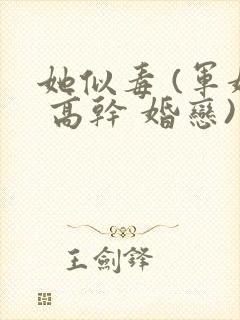 她似毒(軍婚
高幹 婚戀)
王劍鋒